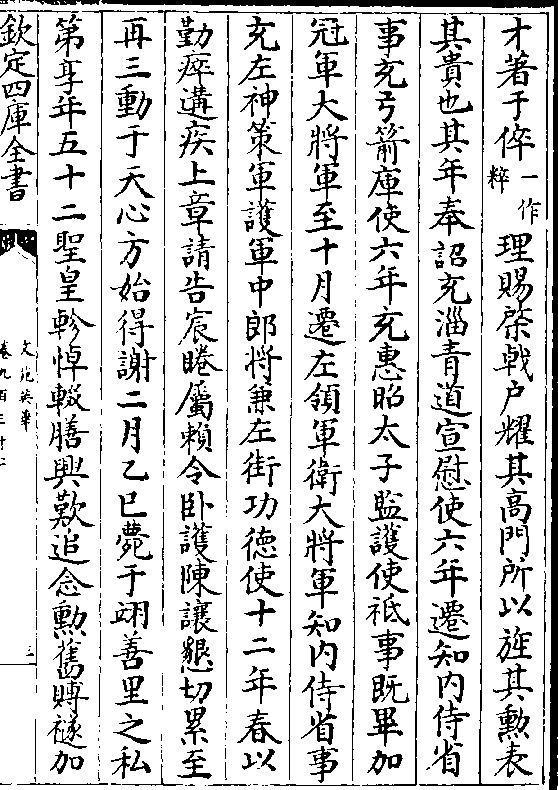 才著于倅一作粹理賜棨戟户耀其高門所以旌其勲表
其貴也其年奉詔充淄青道宣慰使六年遷知内侍省
事充弓箭庫使六年充惠昭太子監護使祗事既畢加
冠軍大將軍至十月遷左領軍衛大將軍知内侍省事
充左神策軍護軍中郎將兼左街功德使十二年春以
勤瘁遘疾上章請告宸睠屬賴令卧護陳讓懇切累至
再三動于天心方始得謝二月乙巳薨于翊善里之私
第享年五十二聖皇軫悼輟膳興歎追念勲舊賻襚加
欽定四庫全書
文苑英華
卷九百三十二
三